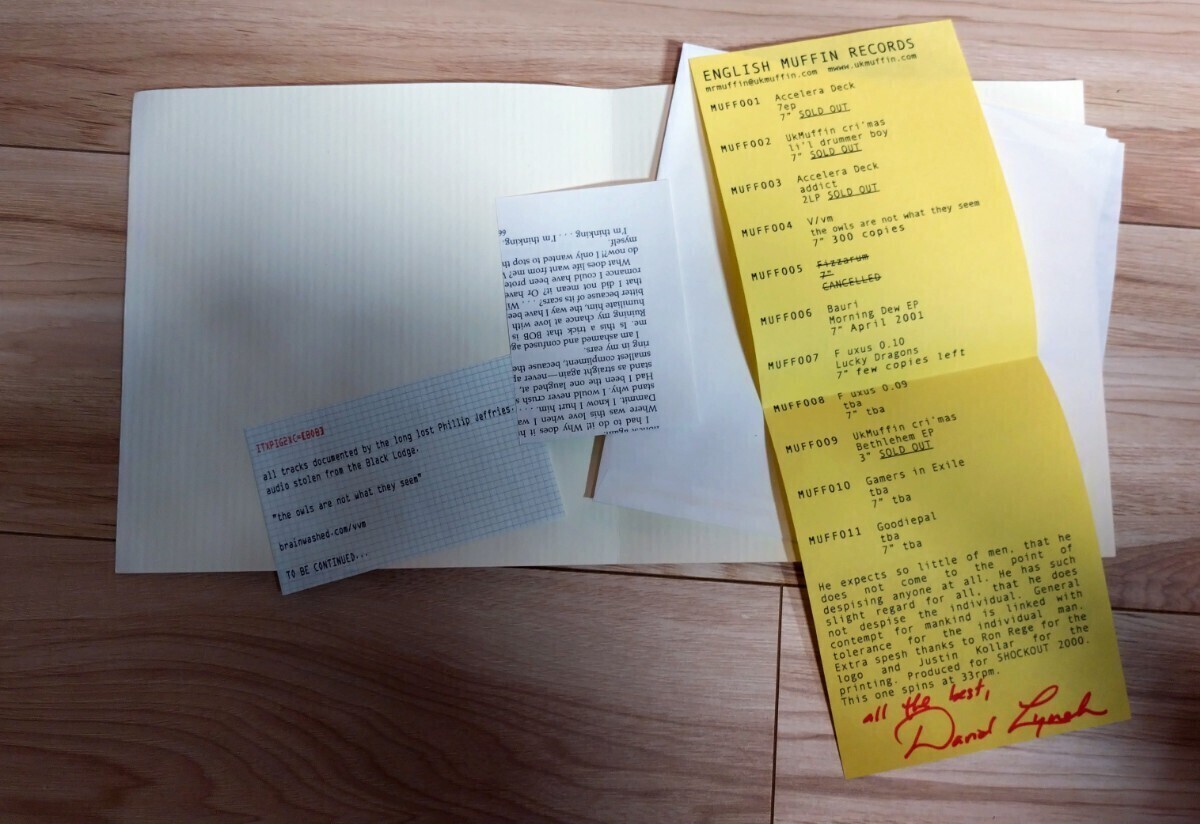 all tracks documented by the long lost Phillip Jeffries.
audio stolen from the Black Lodge.
"the owls are not what they seem"
brainwashed.com/vvm
TO BE CONTINUED...
I had to do it! Why does it h
Where was this love when I wa
Dammit. I know I hurt him. . . .
stand why. I would never crush s
Had I been the one laughed at,
stand as straight again—never ag
smallest compliment, because the
ring in my ears.
I am ashamed and confused ag
me. Is this a trick that BOB is
Ruining my chance at love with
humiliate him, the way I have bee
bitter because of its scars? . . . Wi
that I did not mean it? Or have
romance I could have been prote
What does life want from me?
do now?! I only wanted to stop th
myself.
I'm thinking . . . I'm thinking.
ENGLISH MUFFIN RECORDS
mrmuffin@ukmuffin.com mwww.ukmuffin.com
MUFF001 Accelera Deck
7ep
7" SOLD OUT
MUFF002 UkMuffin cri'mas
li'l drummer boy
7" SOLD OUT
MUFF003 Accelera Deck
addict
2LP SOLD OUT
MUFF004 V/vm
the owls are not what they seem
7" 300 copies
MUFF005 Fizzarum
7"
CANCELLED
MUFF006 Bauri
Morning Dew EP
7" April 2001
MUFF007 F uxus 0.10
Lucky Dragons
7" few copies left
MUFF008 F uxus 0.09
tba
7" tba
MUFF009 UkMuffin cri'mas
Bethlehem EP
3" SOLD OUT
MUFF010 Gamers in Exile
tba
7" tba
MUFF011 Goodiepal
tba
7" tba
He expects so little of men, that he
does not come to the point of
despising anyone at all. He has such
slight regard for all, that he does
not despise the individual. General
contempt for mankind is linked with
tolerance for the individual man.
Extra spesh thanks to Ron Rege for the
logo and Justin Kollar for the
printing. Produced for SHOCKOUT 2000.
This one spins at 33rpm.
all the best,
David Lynch